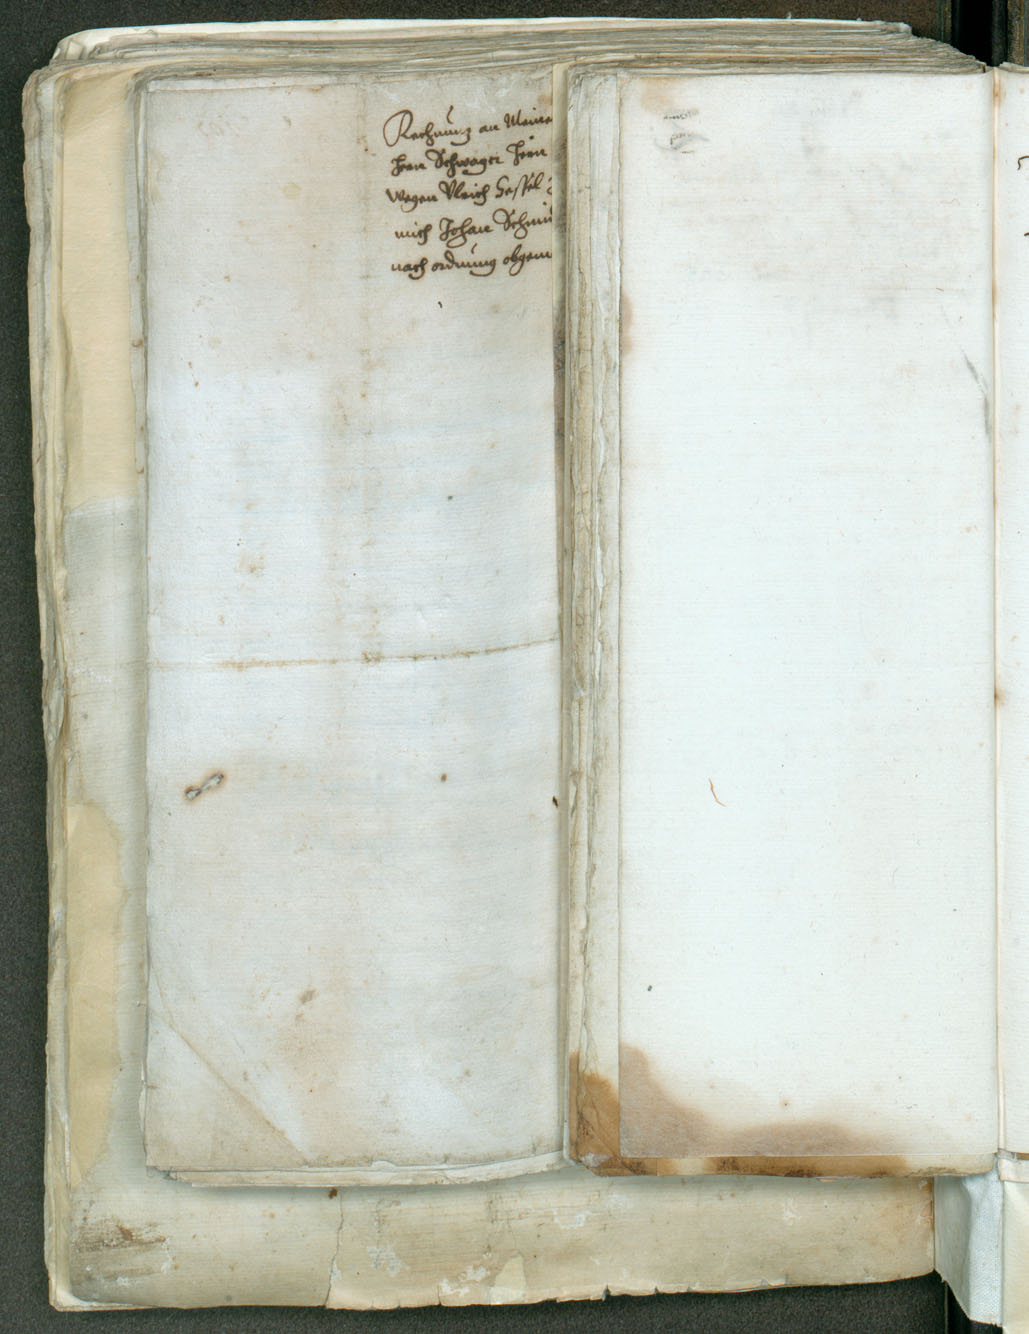 Rechnung an Meine
Herr Schwager Herr
wegen Vlrich Hessel
mich Johan Schmi
nach ordnung obgem